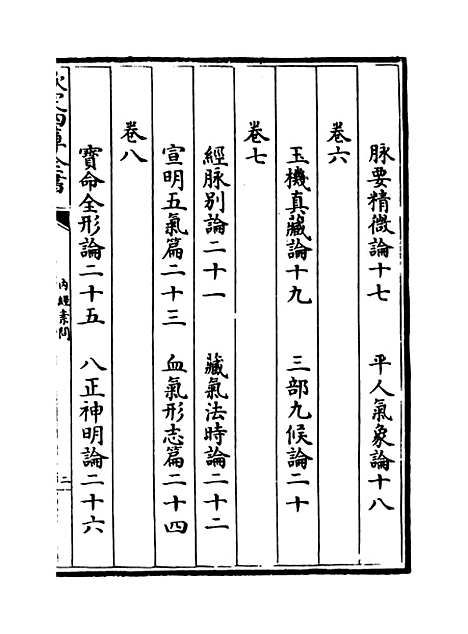 脉要精微論十七 平人氣象論十八
卷六
玉機真藏論十九 三部九候論二十
卷七
經脉别論二十一 藏氣法時論二十二
宣明五氣篇二十三 血氣形志篇二十四
卷八
寳命全形論二十五 八正神明論二十六
欽定四庫全書
内經素問
二